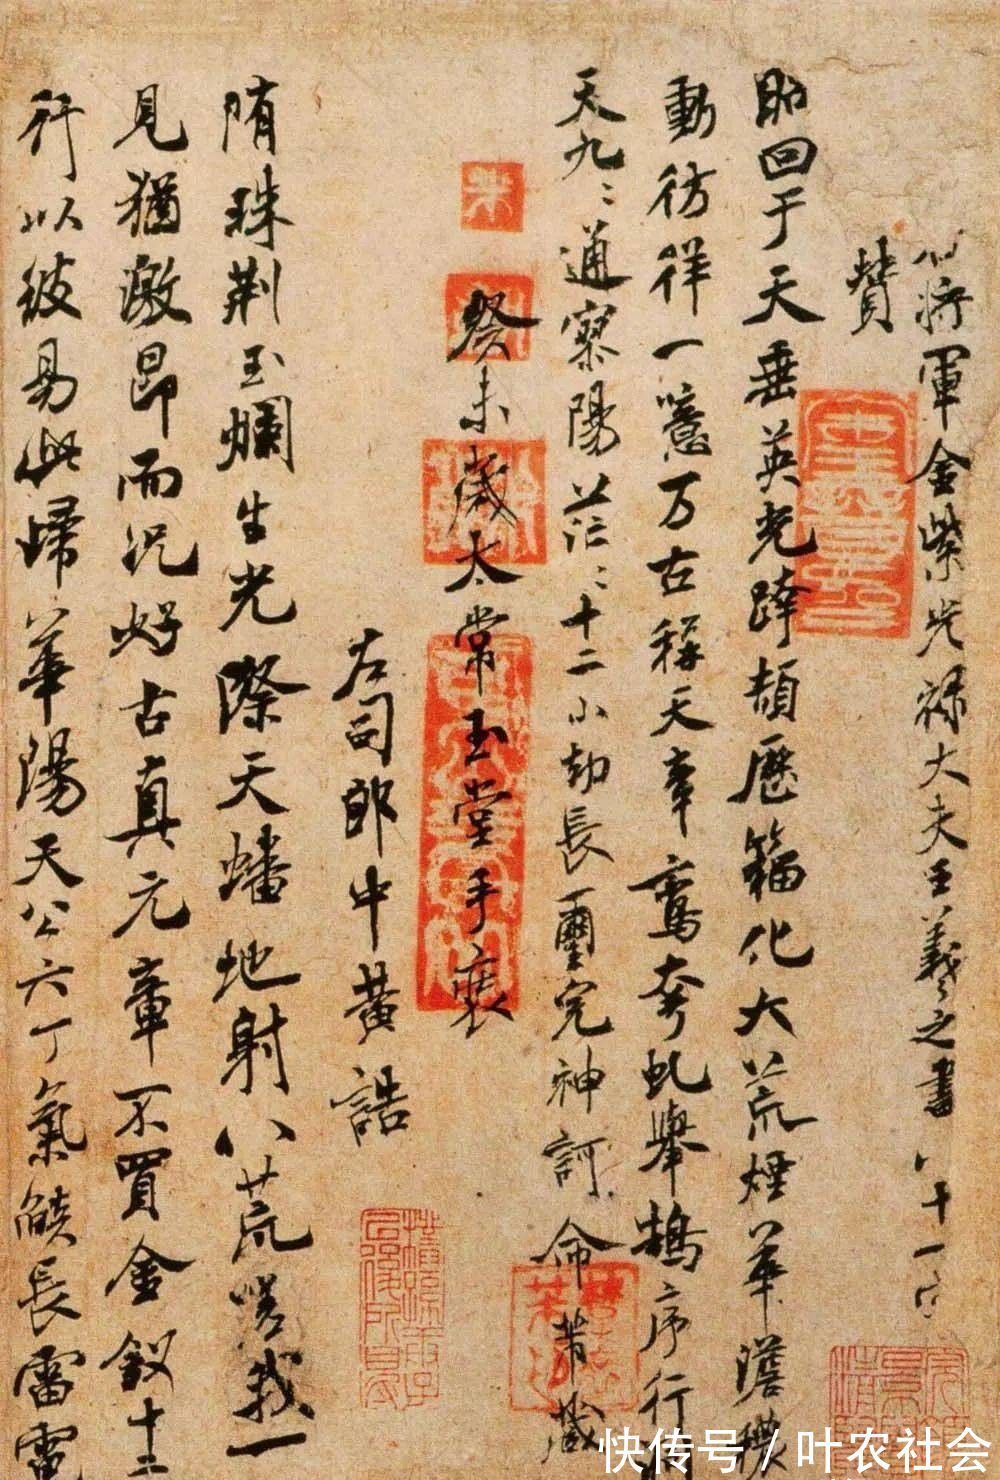 右将軍金紫光禄大夫王羲之書八十一字
賛
昭回于天垂英光跨頡歷籀化大荒煙華澹穠
動彷徉一噫万古稱天章鸞夸虬舉鵠序行
天九〻通寥陽茫〻十二小劫長璽完神訶命芾藏
癸未歲太常玉堂手裹
右司郎中黃誥
隋珠荆玉爛生光際天蟠地射八荒嗟我一
見猶激昂而况好古真元章不買金釵十二
行以彼易此歸華陽天公六丁氣燄長雷電
快传号/叶农社会